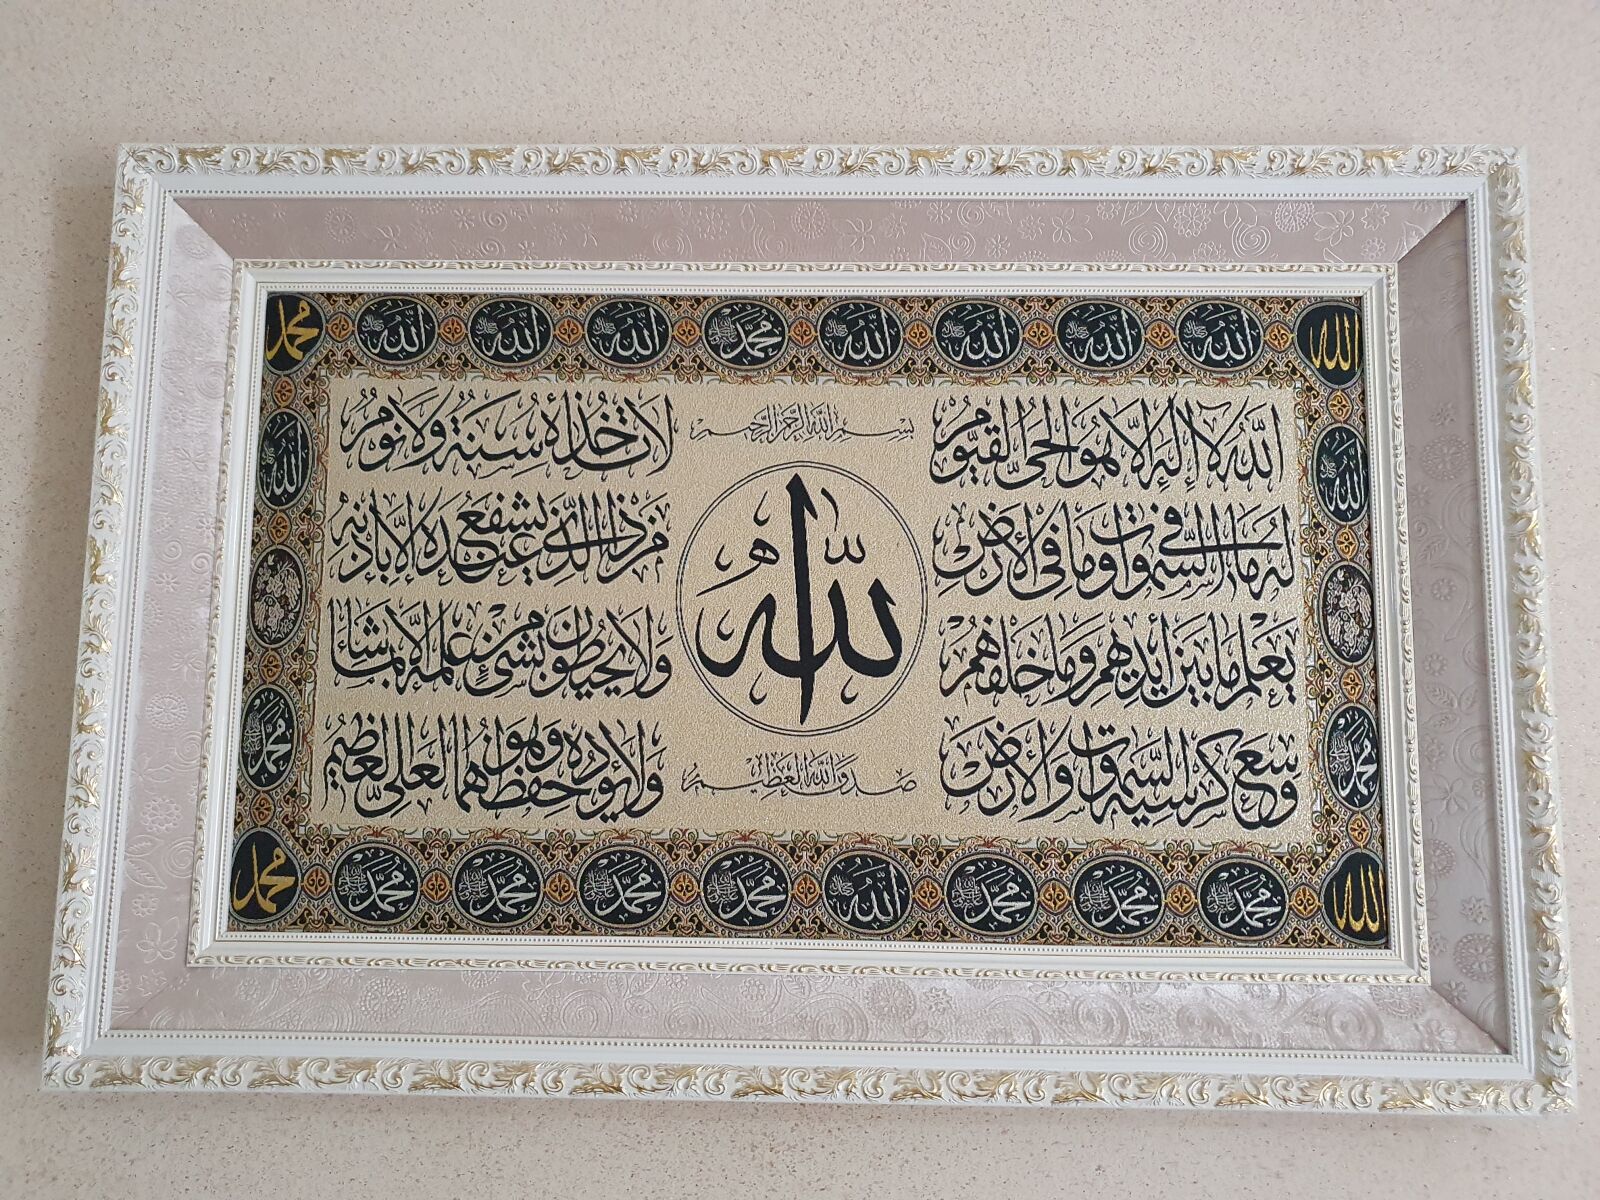 محمد الله الله الله محمد الله الله الله الله الله
بسم الله الرحمن الرحيم
الله لا إله إلا هو الحي القيوم
لا تأخذه سنة ولا نوم
له ما في السموات وما في الأرض
من ذا الذي يشفع عنده إلا بإذنه
يعلم ما بين أيديهم وما خلفهم
ولا يحيطون بشيء من علمه إلا بما شاء
وسع كرسيه السموات والأرض
ولا يؤده حفظهما وهو العلي العظيم
الله
صدق الله العظيم
الله
محمد
الله
محمد
الله محمد محمد محمد الله محمد محمد محمد محمد محمد